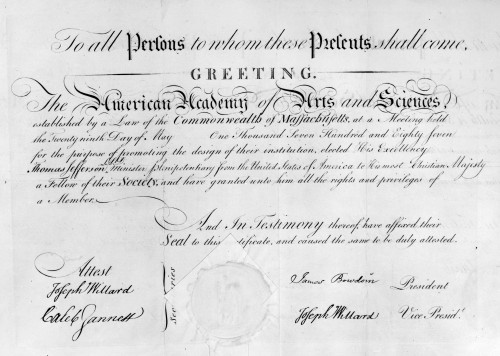 To all Persons to whom these Presents shall come,
GREETING.
The American Academy of Arts and Sciences,
established by a Law of the Commonwealth of Massachusetts, at a Meeting held
the Twenty ninth Day of May One Thousand Seven Hundred and Eighty seven
for the purpose of promoting the design of their institution, elected His Excellency
Thomas Jefferson Esqr. Minister Plenipotentiary from the United States of America to his most Christian Majesty
a Fellow of their Society, and have granted unto him all the rights and privileges of
a Member.
And In Testimony thereof, have affixed their
Seal to this Certificate, and caused the same to be duly attested.
Attest
Joseph Willard
Caleb Gannett
Secretaries
James Bowdoin President
Joseph Willard Vice Presidt.